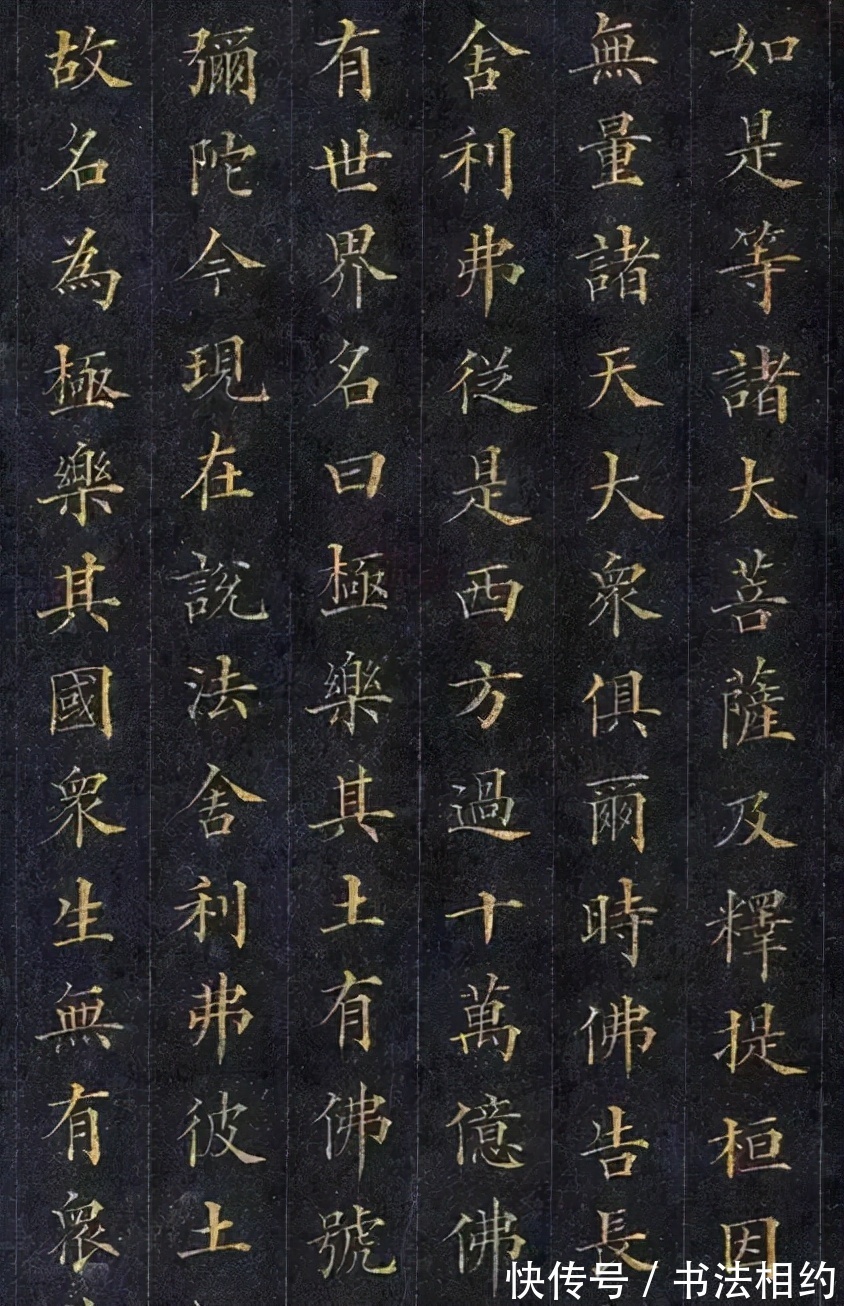 如是等諸大菩薩及釋提桓因
無量諸天大衆俱爾時佛告長
舍利弗從是西方過十萬億佛
有世界名曰極樂其土有佛號
彌陀今現在說法舍利弗彼土
故名為極樂其國衆生無有衆
快传号 / 书法相约